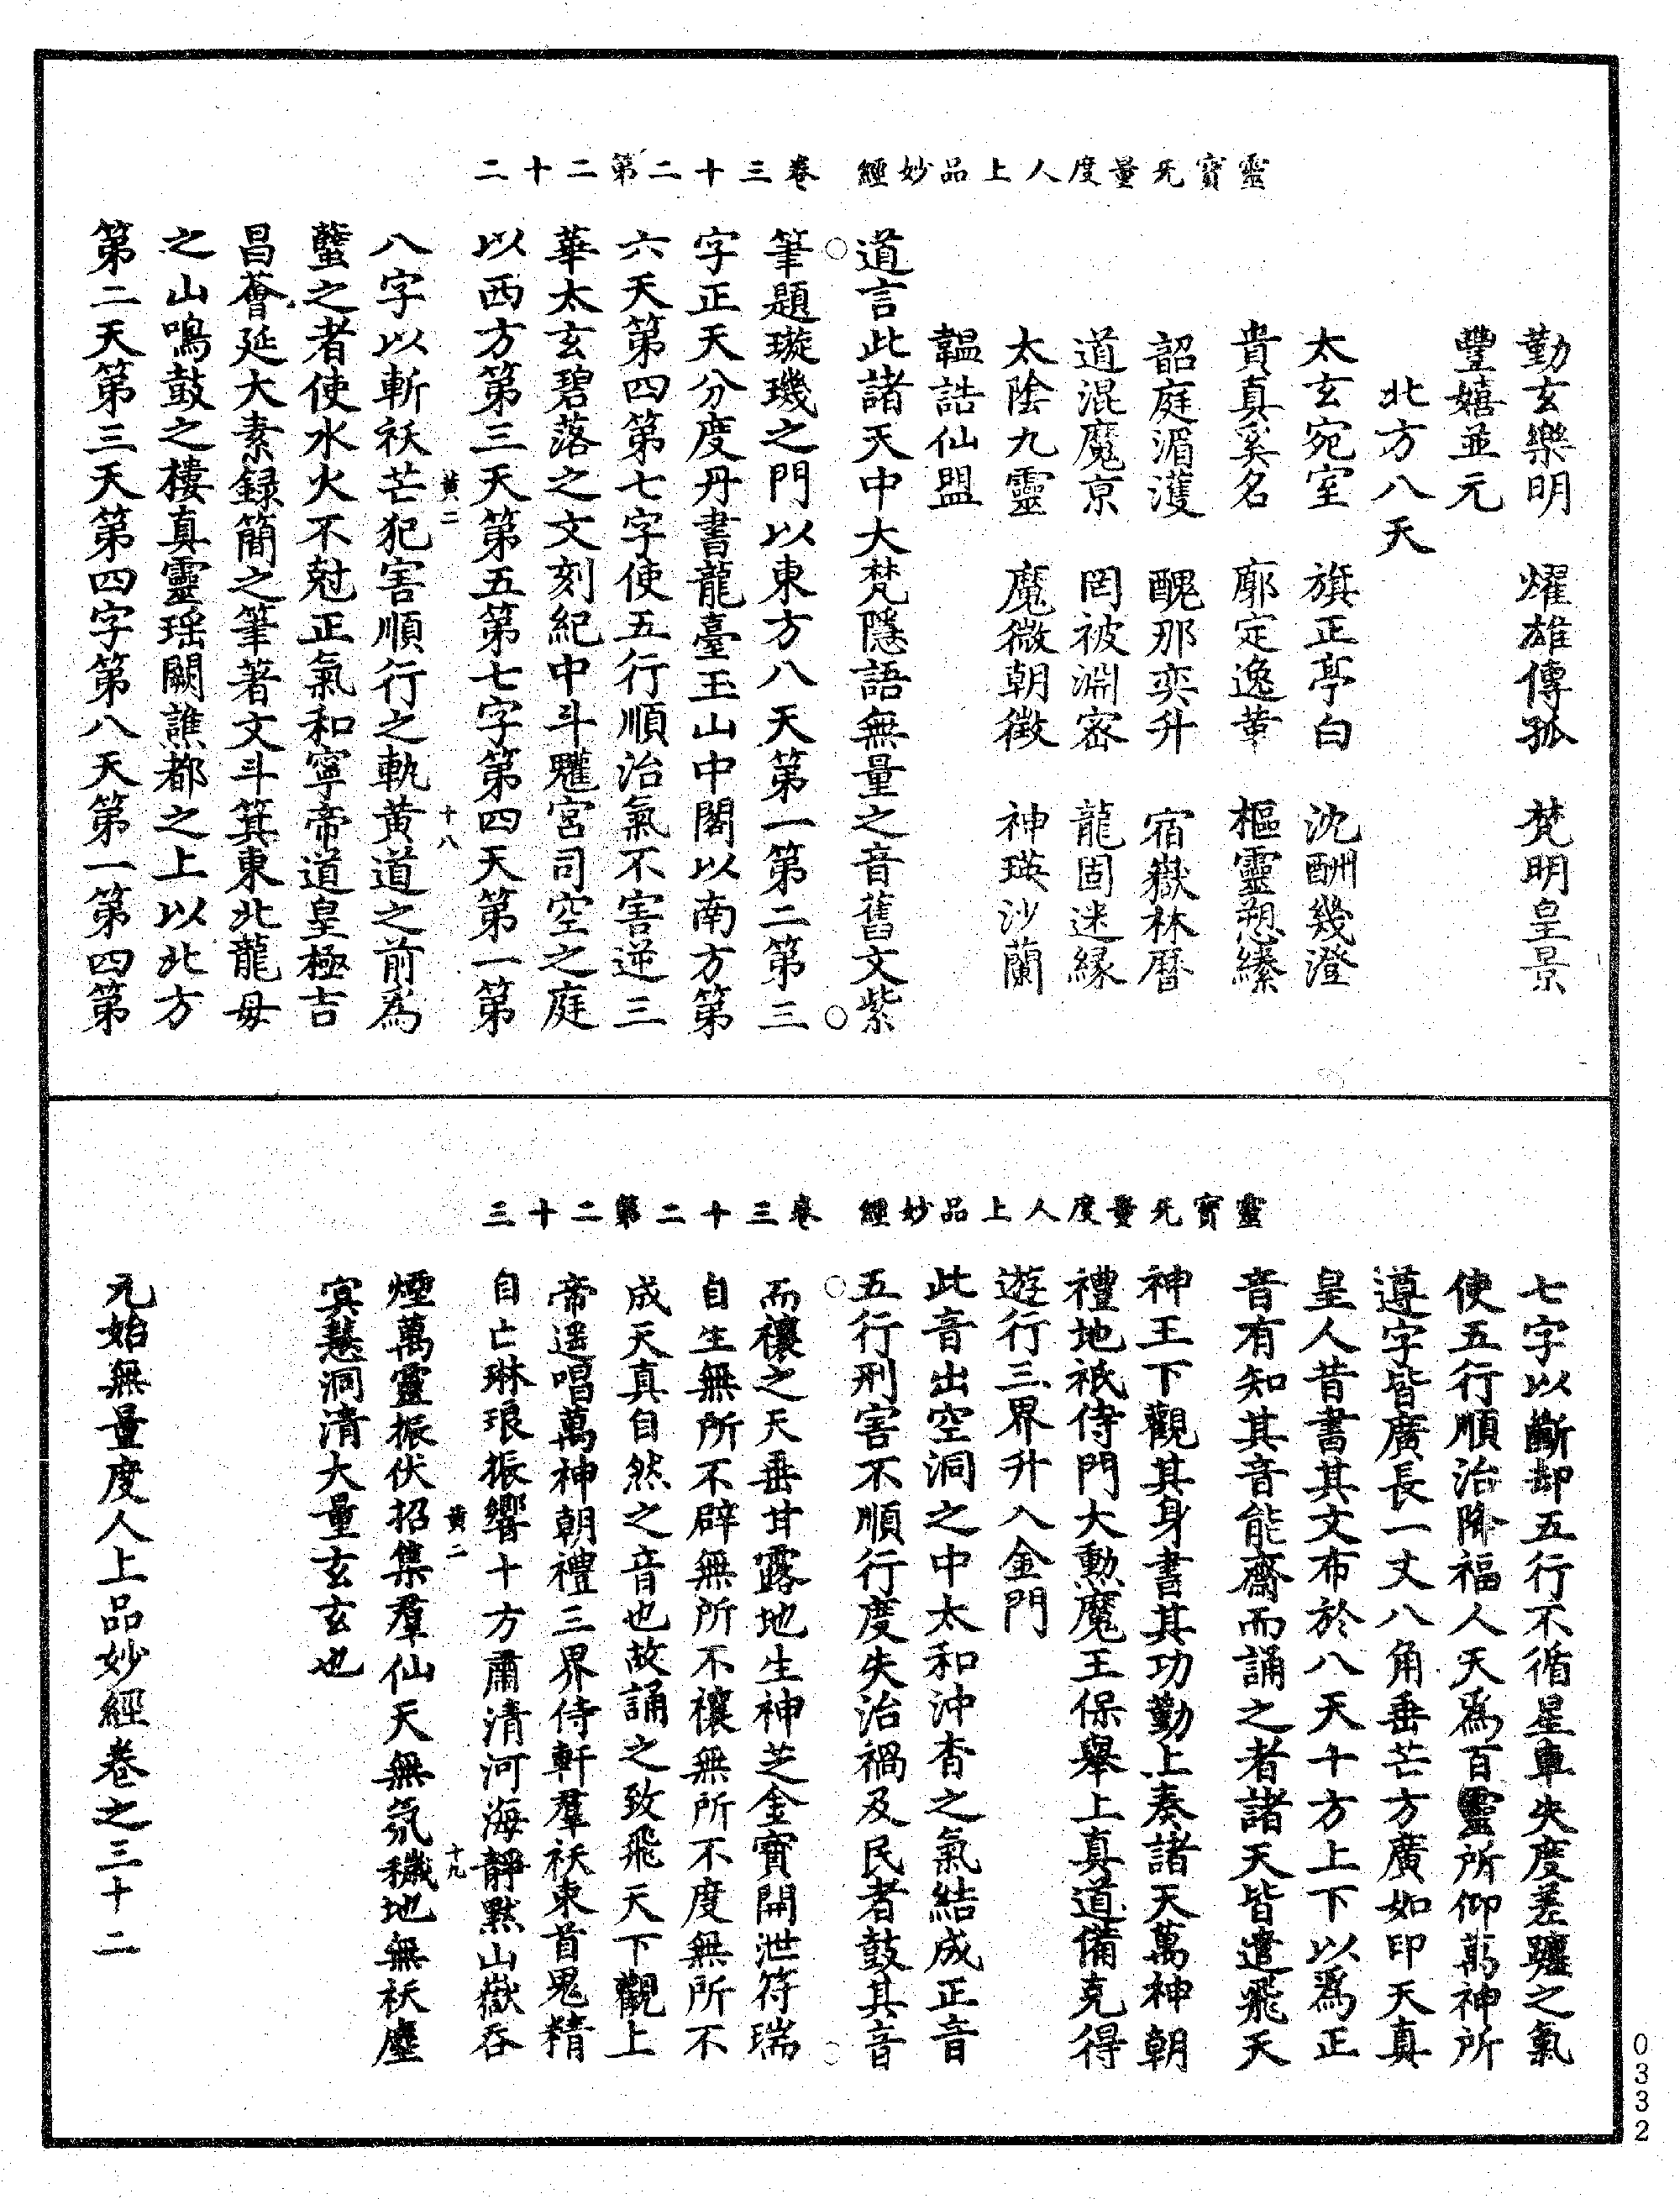 靈寶无量度人上品妙經　卷三十二第二十二
勤玄樂明　燿雄傳孤　梵明皇景
豐嬉並元
北方八天
太玄宛室　旗正亭白　沈酬幾澄
貴真奚名　廓定逸華　樞靈愬縤
韶庭湄濩　醜那奕升　宿嶽秝曆
道混魔京　罔被淵密　龍固迷緣
太陰九靈　魔微朝徵　神瑛沙蘭
韞誥仙盟
道言此諸天中大梵隱語無量之音舊文紫
筆題璇璣之門以東方八天第一第二第三
字正天分度丹書龍臺玉山中閣以南方第
六天第四第七字使五行順治氣不害逆三
華太玄碧落之文刻紀中斗䰢宮司空之庭
以西方第三天第五第七字第四天第一第
黃二　十八
八字以斬祅芒犯害順行之軌黃道之前為
蠥之者使水火不尅正氣和寧帝道皇極吉
昌薈延大素録簡之筆著文斗箕東北龍母
之山鳴鼓之樓真靈瑶闕譙都之上以北方
第二天第三天第四字第八天第一第四第
靈寶无量度人上品妙經　卷三十二第二十三
七字以斷却五行不循星車失度差躔之氣
使五行順治降福人天為百靈所仰萬神所
遵字皆廣長一丈八角垂芒方廣如印天真
皇人昔書其文布於八天十方上下以為正
音有知其音能齋而誦之者諸天皆遣飛天
神王下觀其身書其功勤上奏諸天萬神朝
禮地祇侍門大勲魔王保舉上真道備克得
遊行三界升入金門
此音出空洞之中太和沖杳之氣結成正音
五行刑害不順行度失治禍及民者鼓其音
而禳之天垂甘露地生神芝金寶開泄符瑞
自生無所不辟無所不禳無所不度無所不
成天真自然之音也故誦之致飛天下觀上
帝遥唱萬神朝禮三界侍軒羣祅束首鬼精
自亡琳琅振響十方肅清河海靜默山嶽吞
黃二　十九
煙萬靈振伏招集羣仙天無氛穢地無祅塵
冥慧洞清大量玄玄也
元始無量度人上品妙經卷之三十二
0332